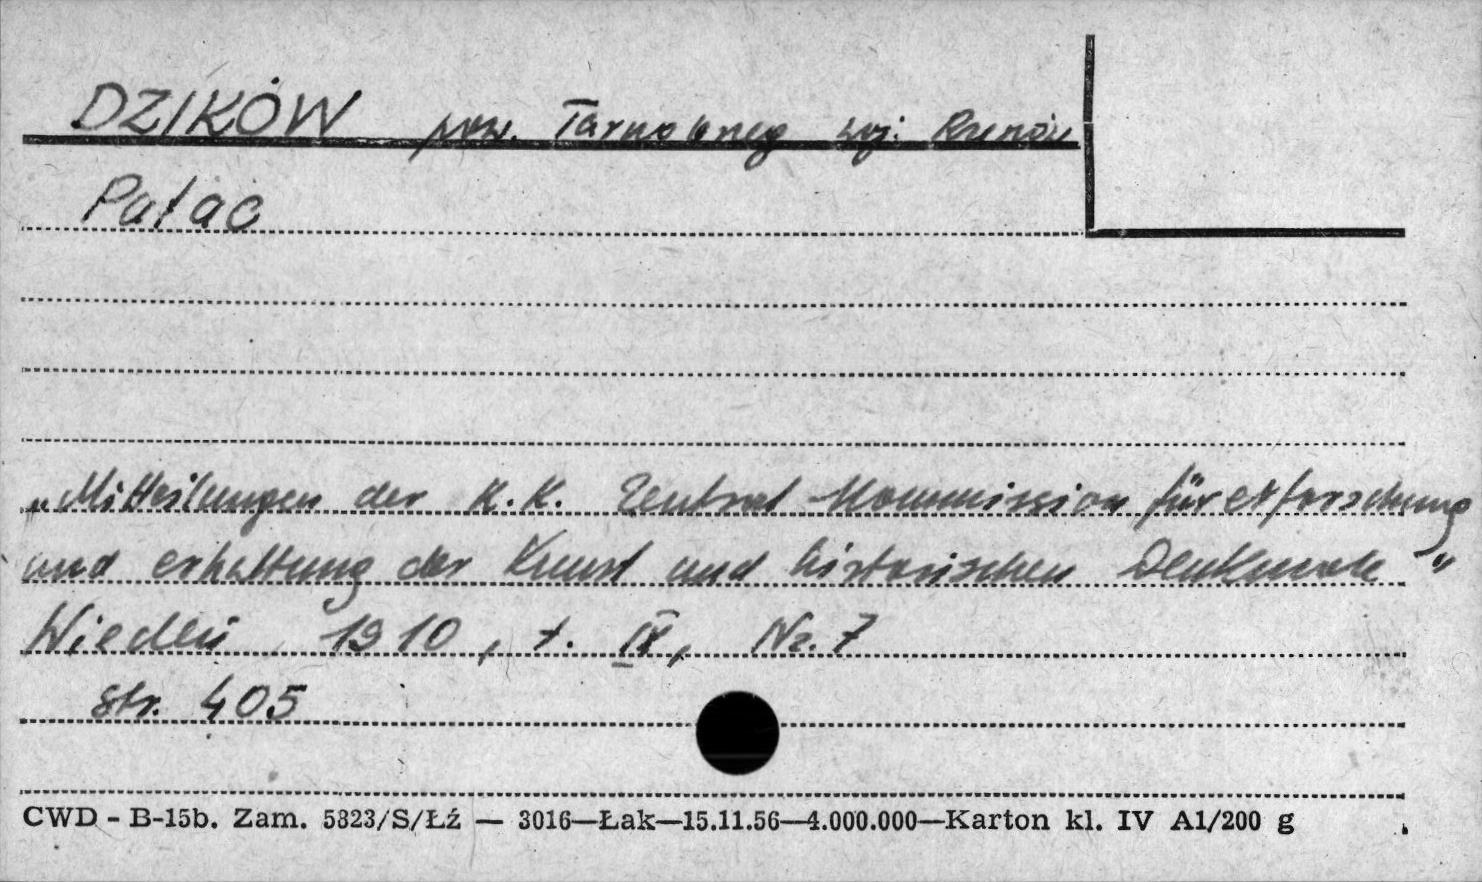 DZIKÓW pow. Tarnobrzeg woj. Rzeszów
Pałac
„Mitteilungen der K.K. Zentral-Kommission für erforschung
und erhaltung der Kunst und historischen Denkmale"
Wiedeń 1910, t. IX, Nr. 7
str. 405
CWD - B-15b. Zam. 5823/S/Łź — 3016—Łak—15.11.56—4.000.000—Karton kl. IV A1/200 g